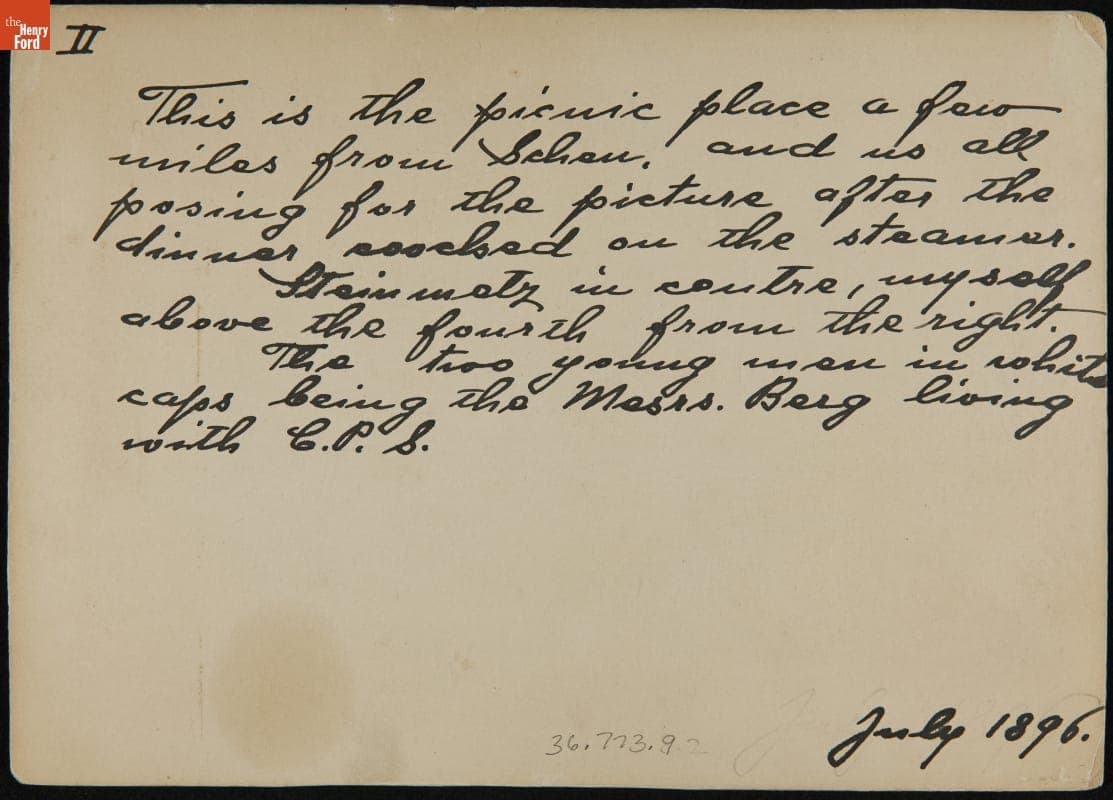 the
Henry
Ford
II
This is the picnic place a few
miles from Schen. and us all
posing for the picture after the
dinner coocksed on the steamer.
Steinmetz in centre, myself
above the fourth from the right.
The two young men in white
caps being the Messrs. Berg living
with C.P.S.
July 1896.
36.773.92